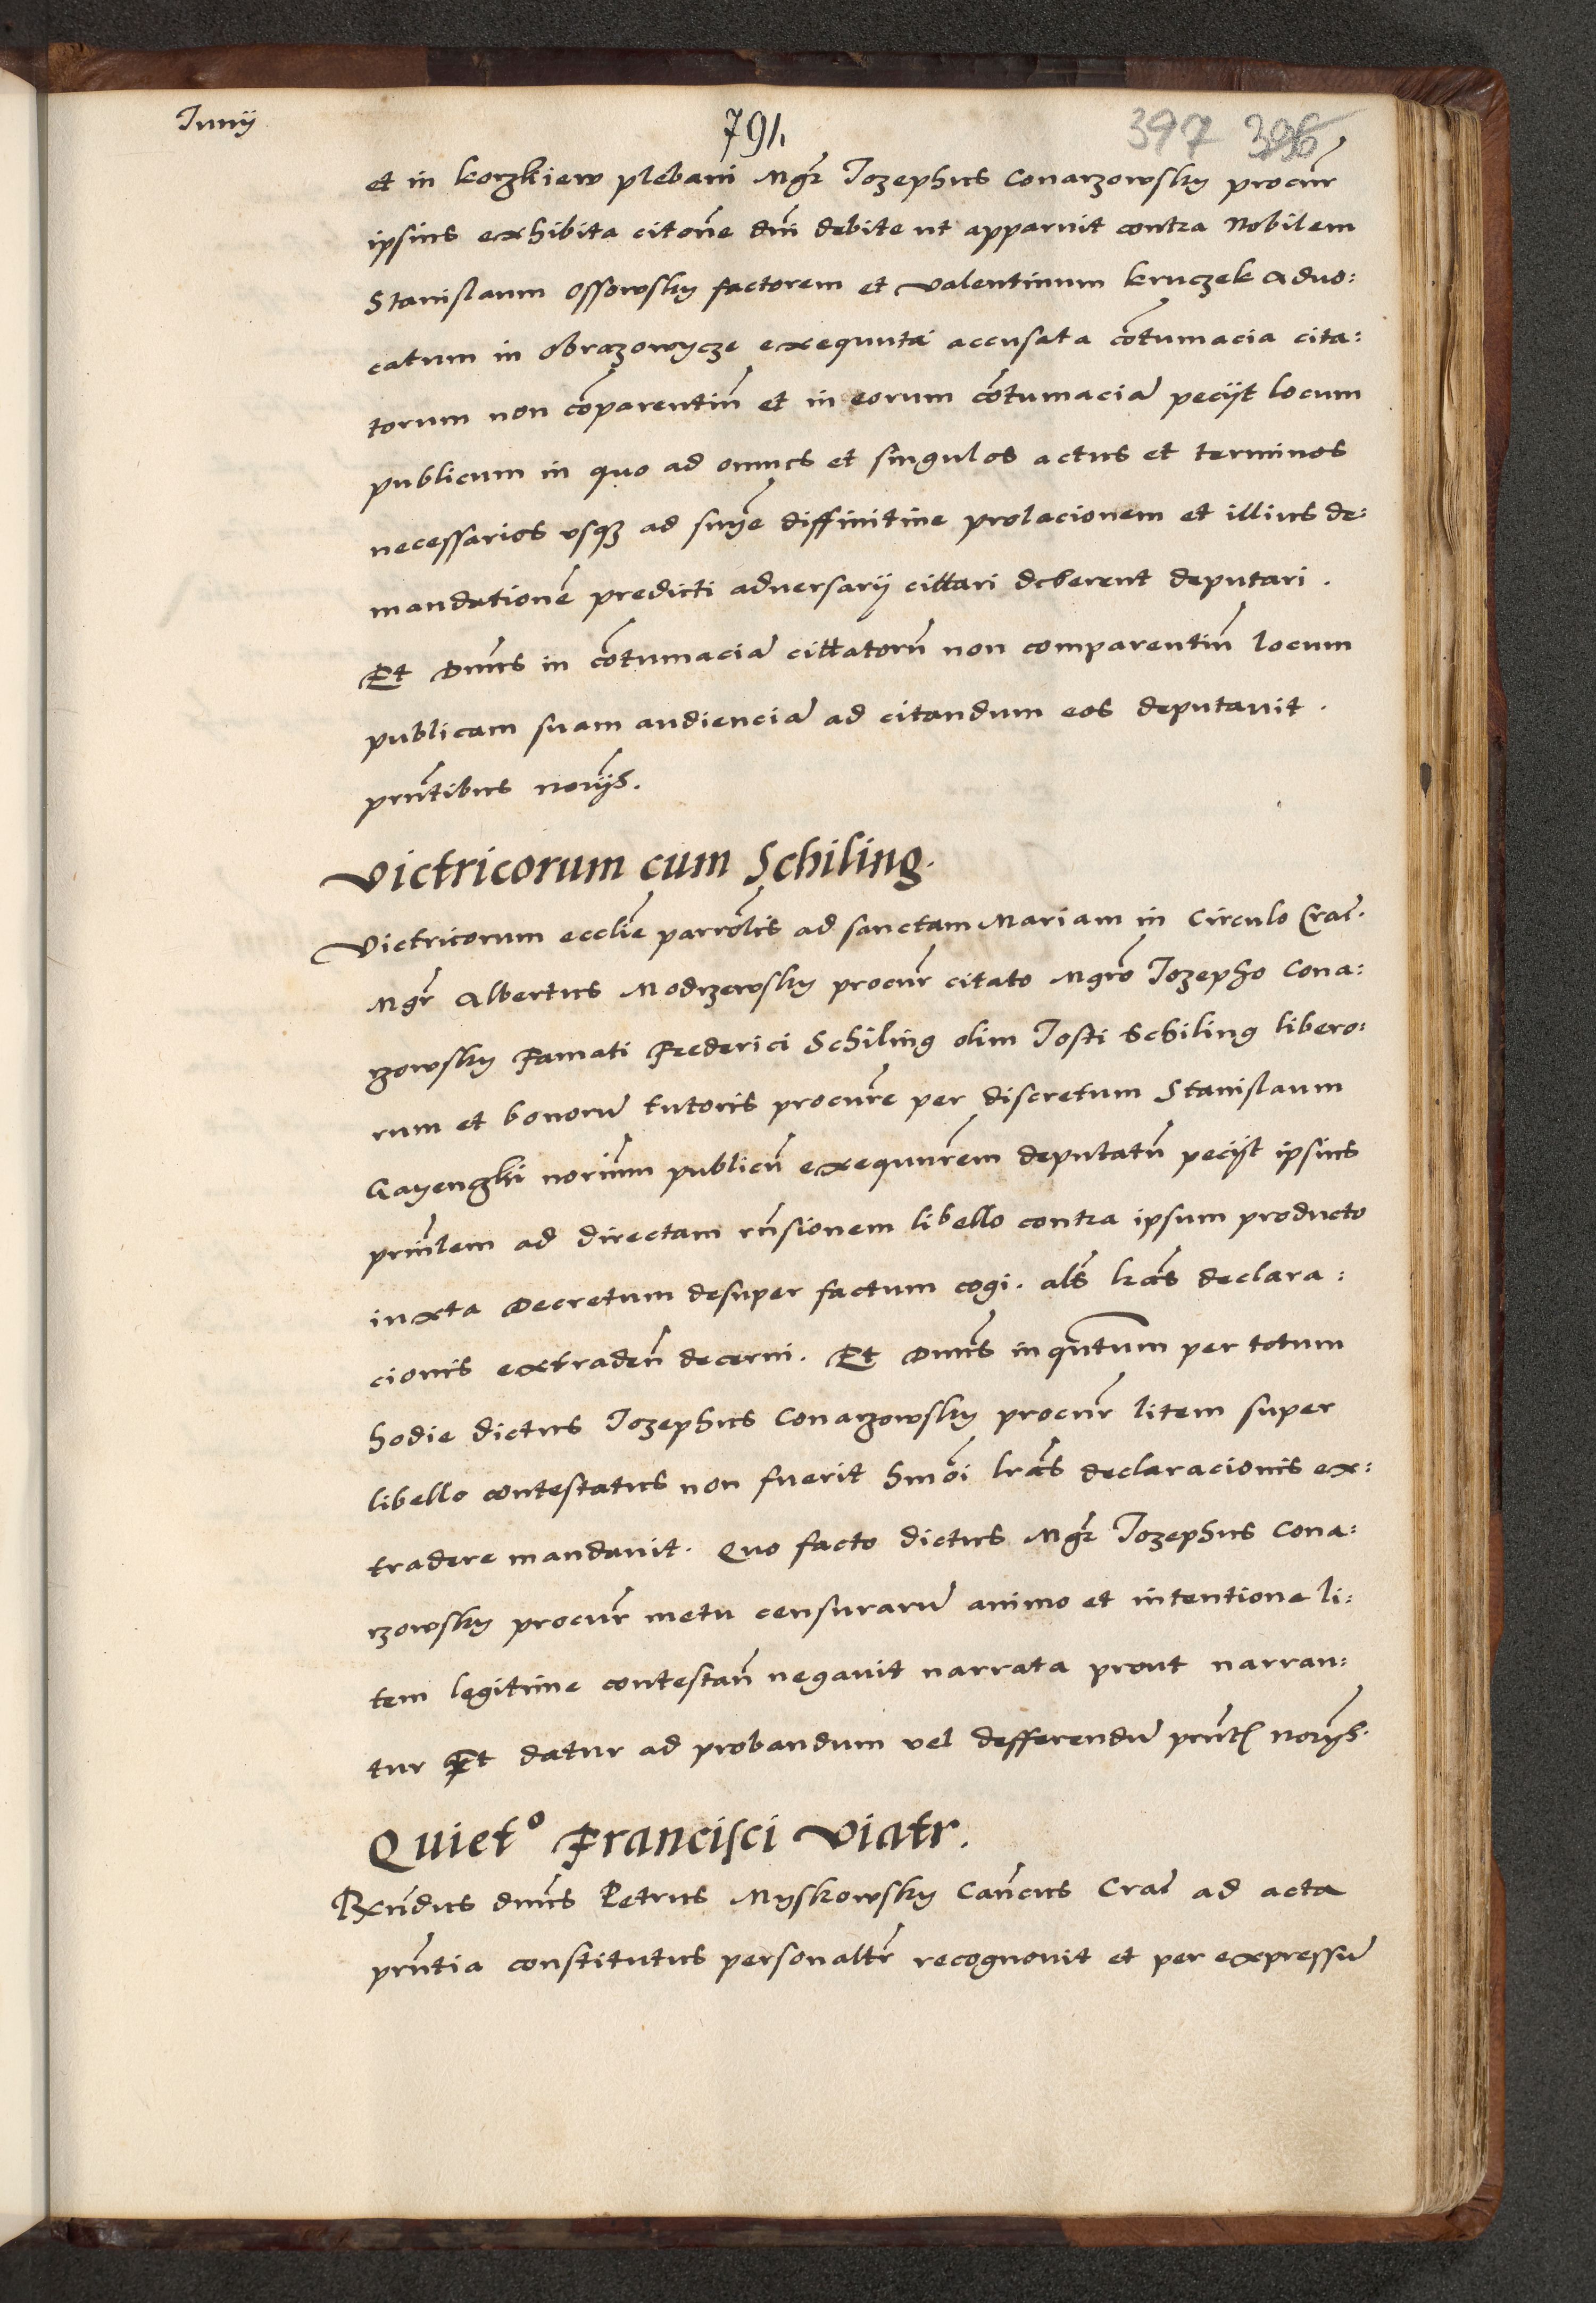 Junij
791
397 396
et in korzkiew plebani Mgr Jozephus Conarzowsky procur
ipsius exhibita citone dni debite ut apparuit contra Nobilem
Stanislaum Ossowsky factorem et Valentinum kruczek aduo:
catum in Obrazowycze exequuta accusata cotumacia cita:
torum non coparentiu et in eorum cotumacia peciit locum
publicum in quo ad omnes et singulos actus et terminos
necessarios vsq3 ad snije diffinitiue prolacionem et illius de:
mandatione predicti aduersarij cittari deberent deputari .
Et Dnus in cotumacia cittatoru non comparentiu locum
publicam suam audiencia ad citandum eos deputauit .
pntibus norijs.
Victricorum cum Schiling.
Victricorum ecclie parrolis ad sanctam Mariam in Circulo Crac.
Mgr Albertus Modrzewsky procur citato Mgro Jozepho Cona:
rzowsky Famati Frederici Schiling olim Josti Schiling libero:
rum et bonoru tutoris procure per discretum Stanislaum
Gayenczki norium publicu exequurem deputatu peciit ipsius
prinlem ad directam rnsionem libello contra ipsum producto
iuxta Decretum desuper factum cogi. als lras declara:
cionis extraden decerni. Et Dnus in qntum per totum
hodie dictus Jozephus Conarzowsky procur litem super
libello contestatus non fuerit hmoi lras declaracionis ex:
tradere mandauit. Quo facto dictus Mgr Jozephus Cona:
rzowsky procur metu censuraru animo et intentione li:
tem legitime contestan negauit narrata prout narran:
tur Et datur ad probandum vel defferendu pntib norijs.
Quieto Francisci Viatr.
Rxndus dnus Petrus Myskowsky Cancus Crac ad acta
pntia constitutus personaltr recognouit et per expressu